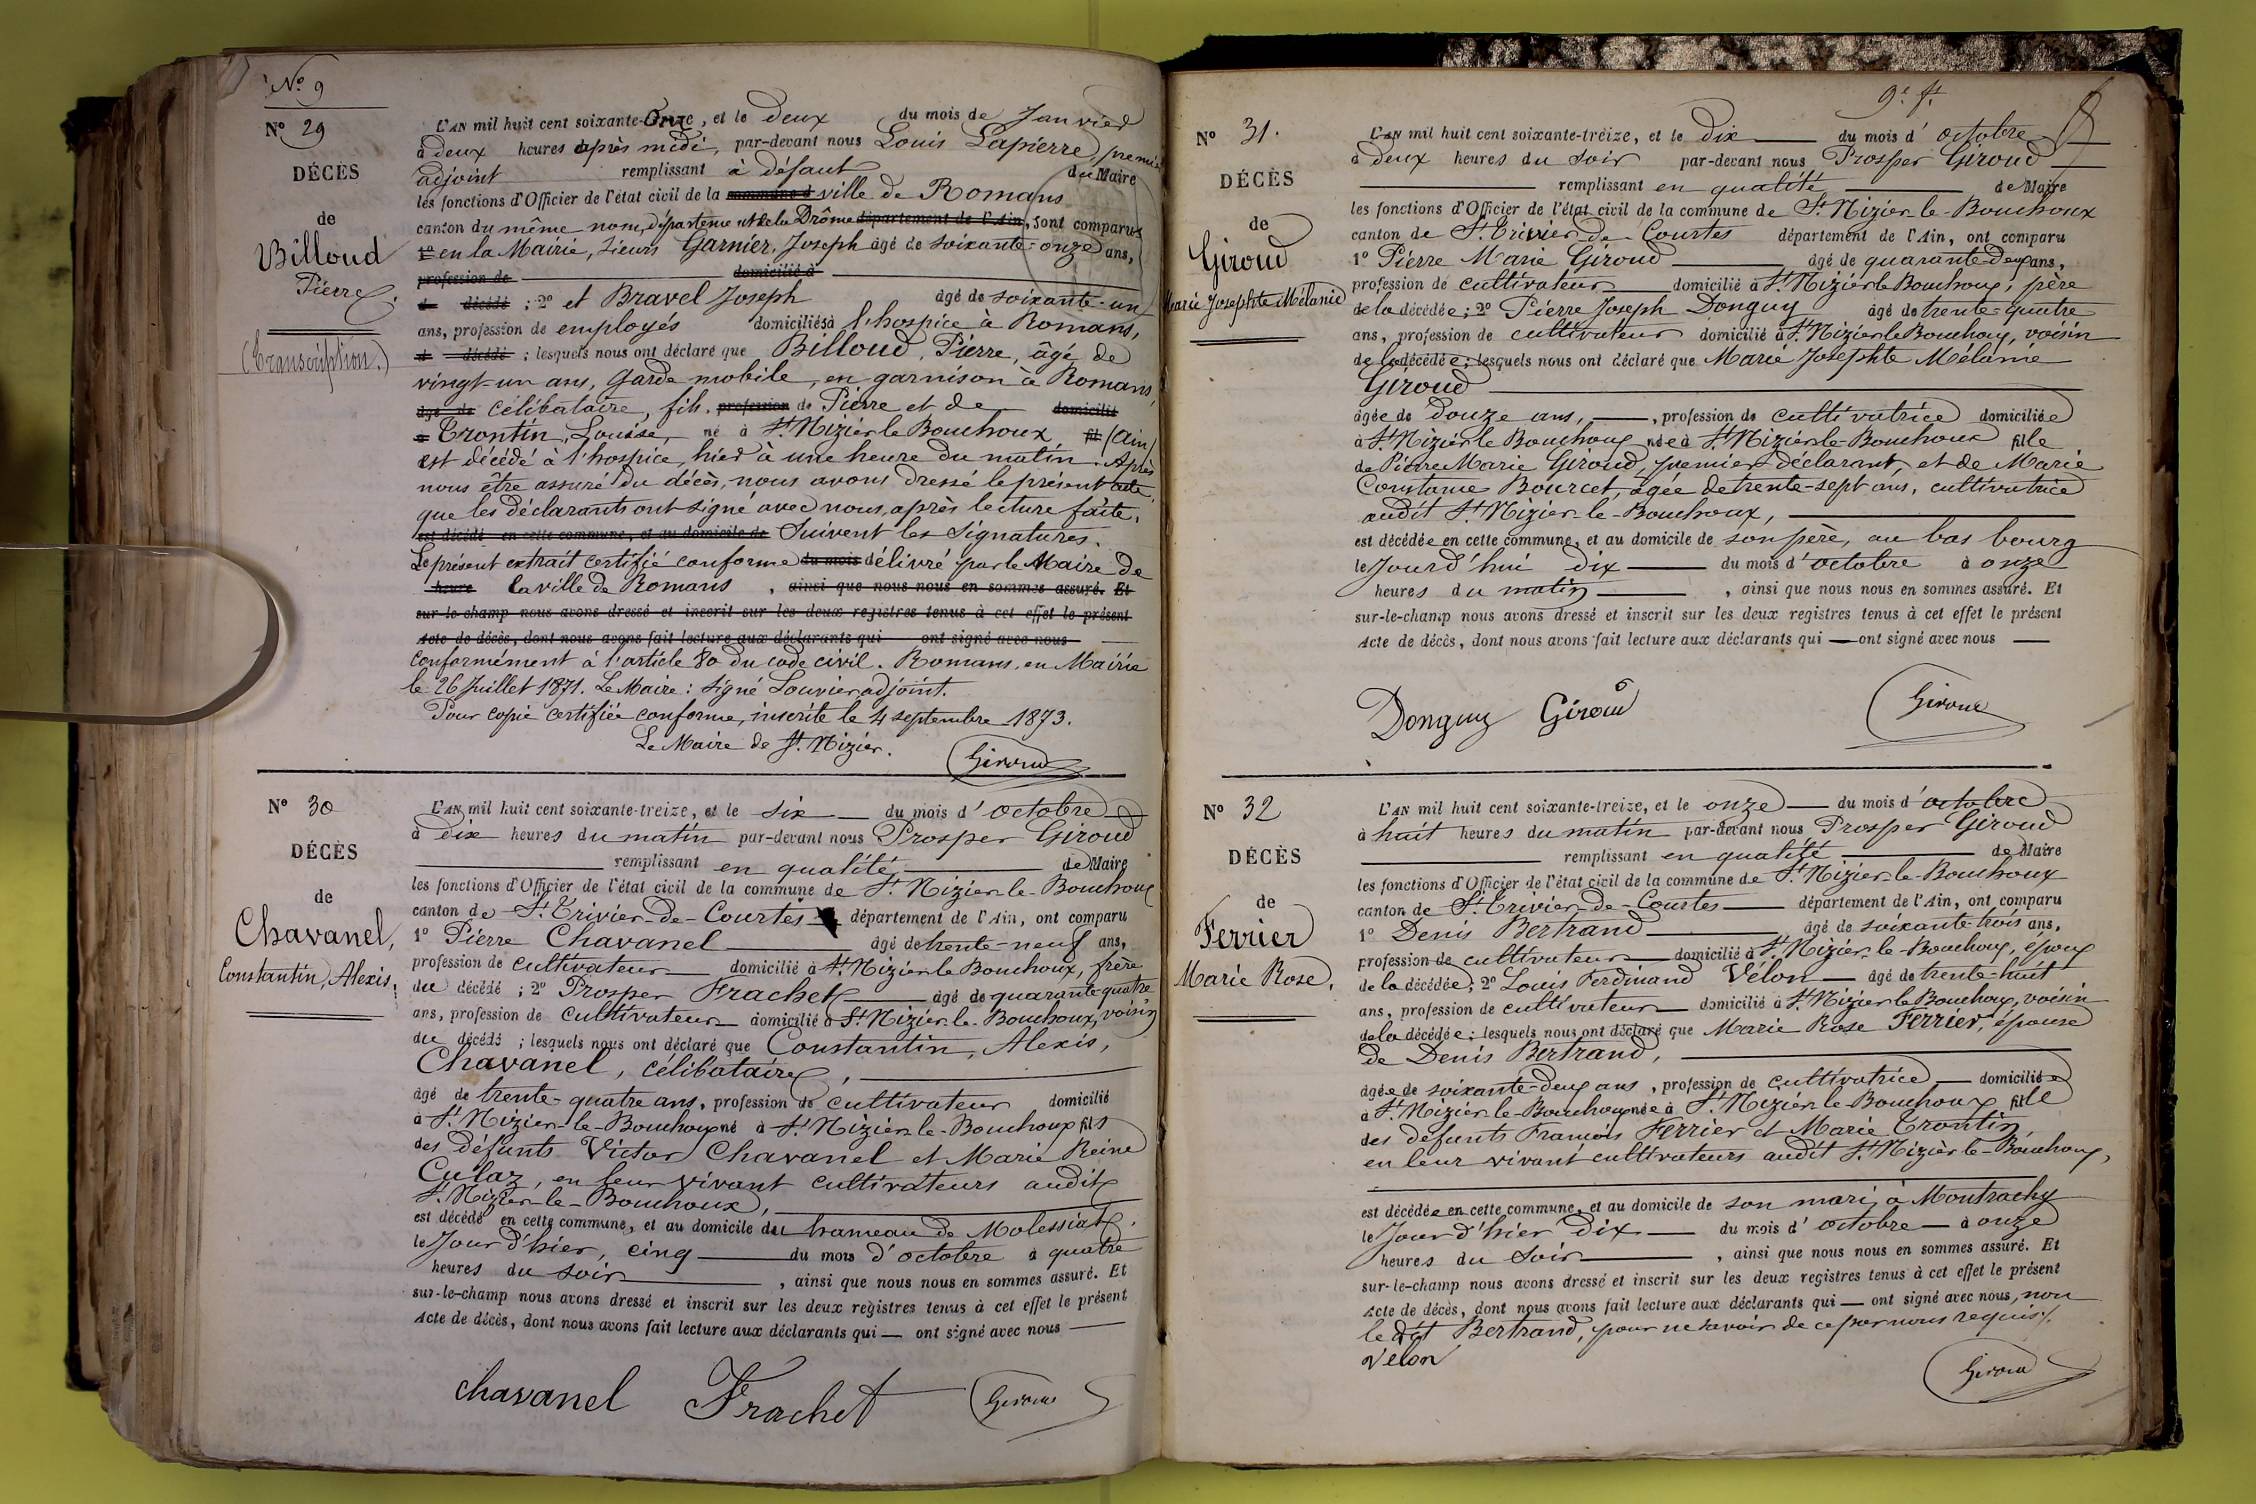 No 9
No 29
DÉCÈS
de
Billoud
Pierre.
(Transcription.)
L'AN mil huit cent soixante-Onze, et le deux du mois de Janvier
à deux heures après midi, par-devant nous Louis Lapierre, premier
adjoint remplissant à défaut du Maire
les fonctions d'Officier de l'état civil de la commune d ville de Romans
canton du même nom, département de la Drôme département de l'Ain, sont comparus
1o en la Mairie, sieurs Garnier, Joseph âgé de soixante-onze ans,
profession de domicilié à
d décédé ; 2o et Bravel Joseph âgé de soixante-un
ans, profession de employés domiciliés à l'hospice à Romans,
d décédé ; lesquels nous ont déclaré que Billoud, Pierre, âgé de
vingt-un ans, Garde mobile, en garnison à Romans,
âgé de célibataire, fils profession de Pierre et de domicilié
à Trontin, Louise, né à St Nizier le Bouchoux fil (Ain)
est décédé à l'hospice, hier à une heure du matin. Après
nous être assuré du décès, nous avons dressé le présent acte,
que les déclarants ont signé avec nous, après lecture faite.
est décédé en cette commune, et au domicile de Suivent les Signatures.
Le présent extrait certifié conforme du mois délivré par le Maire de
heure la ville de Romans , ainsi que nous nous en sommes assuré. Et
sur-le-champ nous avons dressé et inscrit sur les deux registres tenus à cet effet le présent
Acte de décès, dont nous avons fait lecture aux déclarants qui ont signé avec nous
Conformément à l'article 80 du code civil. Romans, en Mairie
le 26 Juillet 1871. Le Maire : signé Louvier adjoint.
Pour copie certifiée conforme, inscrite le 4 septembre 1873.
Le Maire de St Nizier.
Giroud
No 30
DÉCÈS
de
Chavanel,
Constantin, Alexis,
L'AN mil huit cent soixante-treize, et le six du mois d'octobre
à dix heures du matin par-devant nous Prosper Giroud
remplissant en qualité de Maire
les fonctions d'Officier de l'état civil de la commune de St Nizier-le-Bouchoux
canton de St Trivier-de-Courtes département de l'Ain, ont comparu
1o Pierre Chavanel âgé de trente-neuf ans,
profession de cultivateur domicilié à St Nizier le Bouchoux, frère
du décédé ; 2o Prosper Frachet âgé de quarante-quatre
ans, profession de cultivateur domicilié à St Nizier-le-Bouchoux, voisin
du décédé ; lesquels nous ont déclaré que Constantin, Alexis,
Chavanel, célibataire,
âgé de trente-quatre ans, profession de cultivateur domicilié
à St Nizier-le-Bouchoux né à St Nizier-le-Bouchoux fils
des défunts Victor Chavanel et Marie Reine
Culaz, en leur vivant cultivateurs audit
St Nizier-le-Bouchoux,
est décédé en cette commune, et au domicile du hameau de Molessiat,
le Jour d'hier, cinq du mois d'octobre à quatre
heures du soir , ainsi que nous nous en sommes assuré. Et
sur-le-champ nous avons dressé et inscrit sur les deux registres tenus à cet effet le présent
Acte de décès, dont nous avons fait lecture aux déclarants qui — ont signé avec nous
chavanel Frachet Giroud
9e ft.
No 31.
DÉCÈS
de
Giroud
Marie Josephte Mélanie
L'AN mil huit cent soixante-treize, et le dix du mois d'octobre
à deux heures du soir par-devant nous Prosper Giroud
remplissant en qualité de Maire
les fonctions d'Officier de l'état civil de la commune de St Nizier-le-Bouchoux
canton de St Trivier-de-Courtes département de l'Ain, ont comparu
1o Pierre Marie Giroud âgé de quarante-deux ans,
profession de cultivateur domicilié à St Nizier le Bouchoux, père
de la décédée ; 2o Pierre Joseph Donguy âgé de trente-quatre
ans, profession de cultivateur domicilié à St Nizier le Bouchoux, voisin
de la décédée ; lesquels nous ont déclaré que Marie Josephte Mélanie
Giroud
âgée de douze ans, , profession de cultivatrice domiciliée
à St Nizier le Bouchoux née à St Nizier-le-Bouchoux fille
de Pierre Marie Giroud, premier déclarant, et de Marie
Constance Bourcet, âgée de trente-sept ans, cultivatrice
audit St Nizier-le-Bouchoux,
est décédée en cette commune, et au domicile de son père, au bas bourg
le Jourd'hui dix du mois d'octobre à onze
heures du matin , ainsi que nous nous en sommes assuré. Et
sur-le-champ nous avons dressé et inscrit sur les deux registres tenus à cet effet le présent
Acte de décès, dont nous avons fait lecture aux déclarants qui — ont signé avec nous
Donguy Giroud Giroud
No 32
DÉCÈS
de
Ferrier
Marie Rose,
L'AN mil huit cent soixante-treize, et le onze du mois d'octobre
à huit heures du matin par-devant nous Prosper Giroud
remplissant en qualité de Maire
les fonctions d'Officier de l'état civil de la commune de St Nizier-le-Bouchoux
canton de St Trivier-de-Courtes département de l'Ain, ont comparu
1o Denis Bertrand âgé de soixante-trois ans,
profession de cultivateur domicilié à St Nizier-le-Bouchoux, époux
de la décédée ; 2o Louis Ferdinand Vélon âgé de trente-huit
ans, profession de cultivateur domicilié à St Nizier le Bouchoux, voisin
de la décédée ; lesquels nous ont déclaré que Marie Rose Ferrier, épouse
de Denis Bertrand,
âgée de soixante-deux ans , profession de cultivatrice domiciliée
à St Nizier-le-Bouchoux née à St Nizier-le-Bouchoux fille
des défunts François Ferrier et Marie Trontin,
en leur vivant cultivateurs audit St Nizier-le-Bouchoux,
est décédée en cette commune, et au domicile de son mari, à Montrachy
le Jour d'hier dix du mois d'octobre à onze
heures du soir , ainsi que nous nous en sommes assuré. Et
sur-le-champ nous avons dressé et inscrit sur les deux registres tenus à cet effet le présent
Acte de décès, dont nous avons fait lecture aux déclarants qui — ont signé avec nous, non
le dit Bertrand, pour ne savoir de ce par nous requis.
Vélon
Giroud